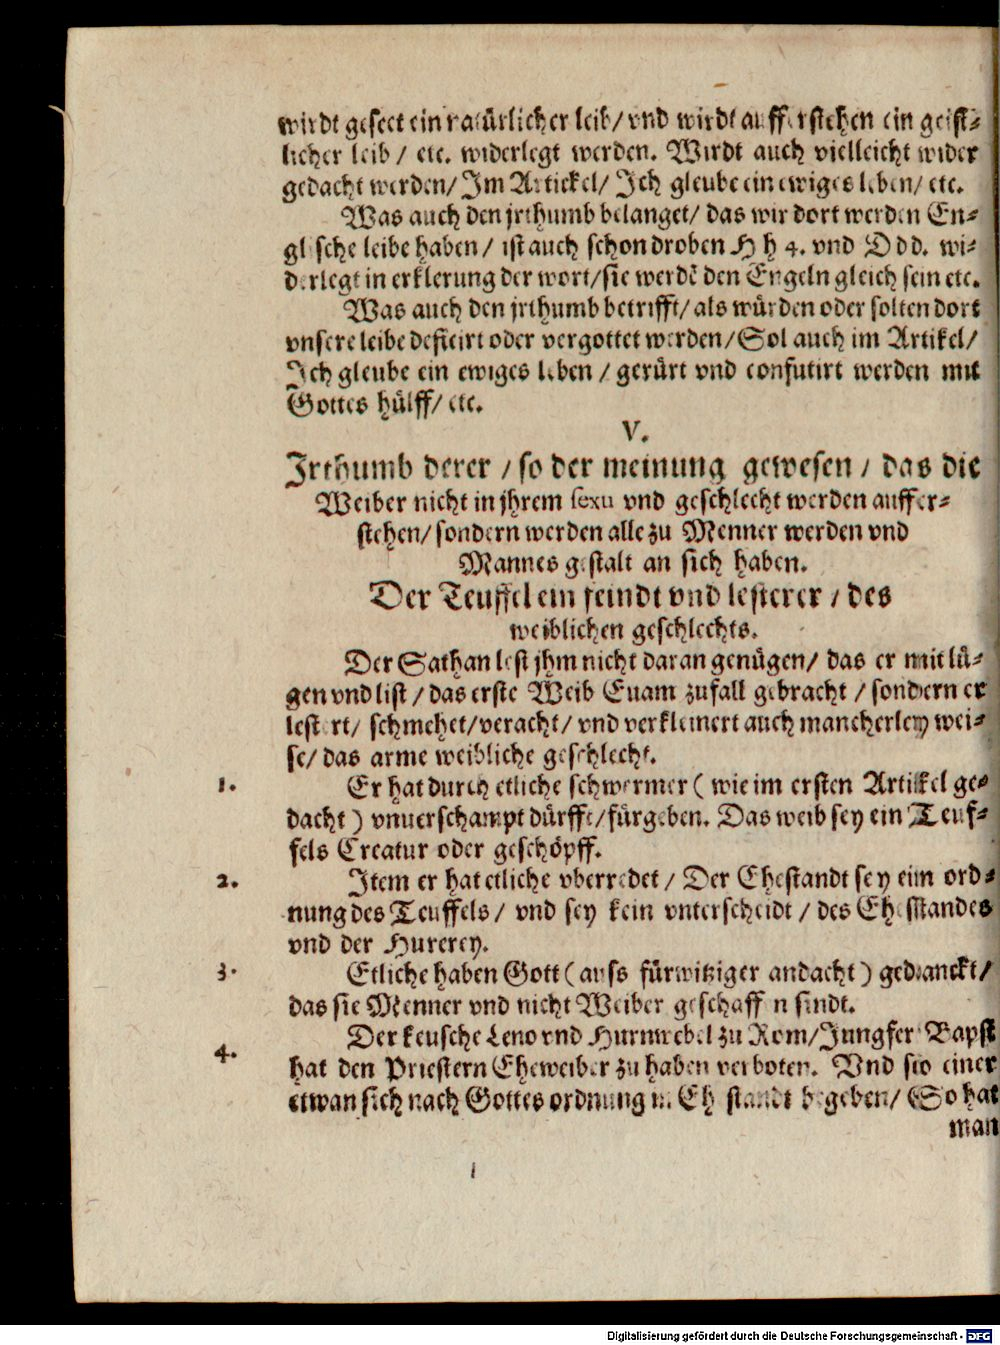 wirdt geseet ein natürlicher leib/ vnd wirdt aufferstehen ein geist-
licher leib/ etc. widerlegt werden. Wirdt auch vielleicht wider
gedacht werden/ Im Artickel/ Ich gleube ein ewiges leben/ etc.
Was auch den jrthumb belanget/ das wir dort werden En-
glische leibe haben/ ist auch schon droben H h 4. vnd D d d. wi-
derlegt in erklerung der wort/ sie werdē den Engeln gleich sein etc.
Was auch den jrthumb betrifft/ als würden oder solten dort
vnsere leibe deficirt oder vergottet werden/ Sol auch im Artikel/
Ich gleube ein ewiges leben/ gerürt vnd confutirt werden mit
Gottes hülff/ etc.
V.
Irthumb derer/ so der meinung gewesen/ das die
Weiber nicht in jhrem sexu vnd geschlecht werden auffer-
stehen/ sondern werden alle zu Menner werden vnd
Mannes gestalt an sich haben.
Der Teuffel ein feindt vnd lesterer/ des
weiblichen geschlechts.
Der Sathan lest jhm nicht daran genügen/ das er mit lü-
gen vnd list/ das erste Weib Euam zufall gebracht/ sondern er
lestert/ schmehet/ veracht/ vnd verkleinert auch mancherley wei-
se/ das arme weibliche geschlecht.
1. Er hat durch etliche schwermer (wie im ersten Artikel ge-
dacht) vnuerschampt dürffe/ fürgeben. Das weib sey ein Teuf-
fels Creatur oder geschöpff.
2. Item er hat etliche vberredet/ Der Ehestandt sey ein ord-
nung des Teuffels/ vnd sey kein vnterscheidt/ des Ehestandes
vnd der Hurerey.
3. Etliche haben Gott (auss fürwitziger andacht) gedanckt/
das sie Menner vnd nicht Weiber geschaffen sindt.
4. Der keusche Leno vnd Hurnwebel zu Rom/ Jungfer Bapst
hat den Priestern Eheweiber zu haben verboten. Vnd so einer
etwan sich nach Gottes ordnung in Ehestandt begeben/ So hat
man
Digitalisierung gefördert durch die Deutsche Forschungsgemeinschaft - DFG